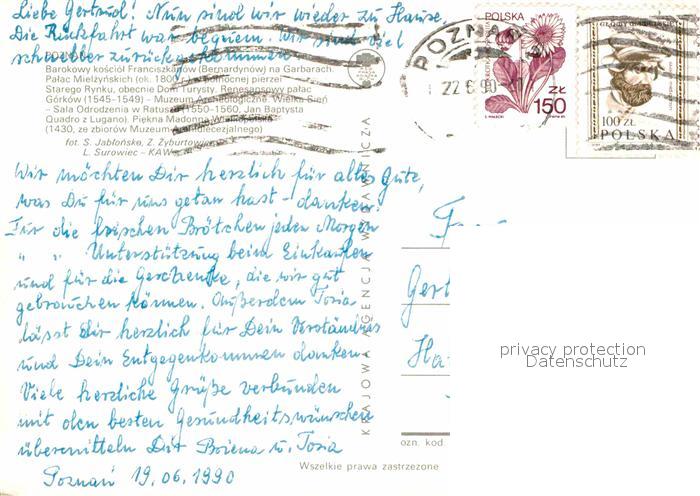 Liebe Gertrud! Nun sind wir wieder zu Hause.
Die Rückfahrt war bequem. Wir sind viel
schneller zurückgekommen.
POZNAŃ
Barokowy kościół Franciszkanów (Bernardynów) na Garbarach.
Pałac Mielżyńskich (ok. 1800 r.) w północnej pierzei
Starego Rynku, obecnie Dom Turysty. Renesansowy pałac
Górków (1545-1549) – Muzeum Archeologiczne. Wielka Sień
– Sala Odrodzenia w Ratuszu (1550-1560, Jan Baptysta
Quadro z Lugano). Piękna Madonna Wielkopolska
(1430, ze zbiorów Muzeum Archidiecezjalnego)
fot. S. Jabłońska, Z. Żyburtowicz
L. Surowiec - KAW
Wir möchten Dir herzlich für alles Gute,
was Du für uns getan hast - danken.
Für die frischen Brötchen jeden Morgen
" " Unterstützung beim Einkaufen
und für die Geschenke, die wir gut
gebrauchen können. Außerdem Tosia
lässt Dir herzlich für Dein Verständnis
und Dein Entgegenkommen danken.
Viele herzliche Grüße verbunden
mit den besten Gesundheitswünschen
übermitteln Dir Bożena u. Tosia
Poznań 19.06.1990
KRAJOWA AGENCJA WYDAWNICZA
POZNAŃ
22 6 90
POLSKA
150 ZŁ
100 ZŁ
POLSKA
F...
Gert
Ha
privacy protection
Datenschutz
ozn. kod.
Wszelkie prawa zastrzeżone